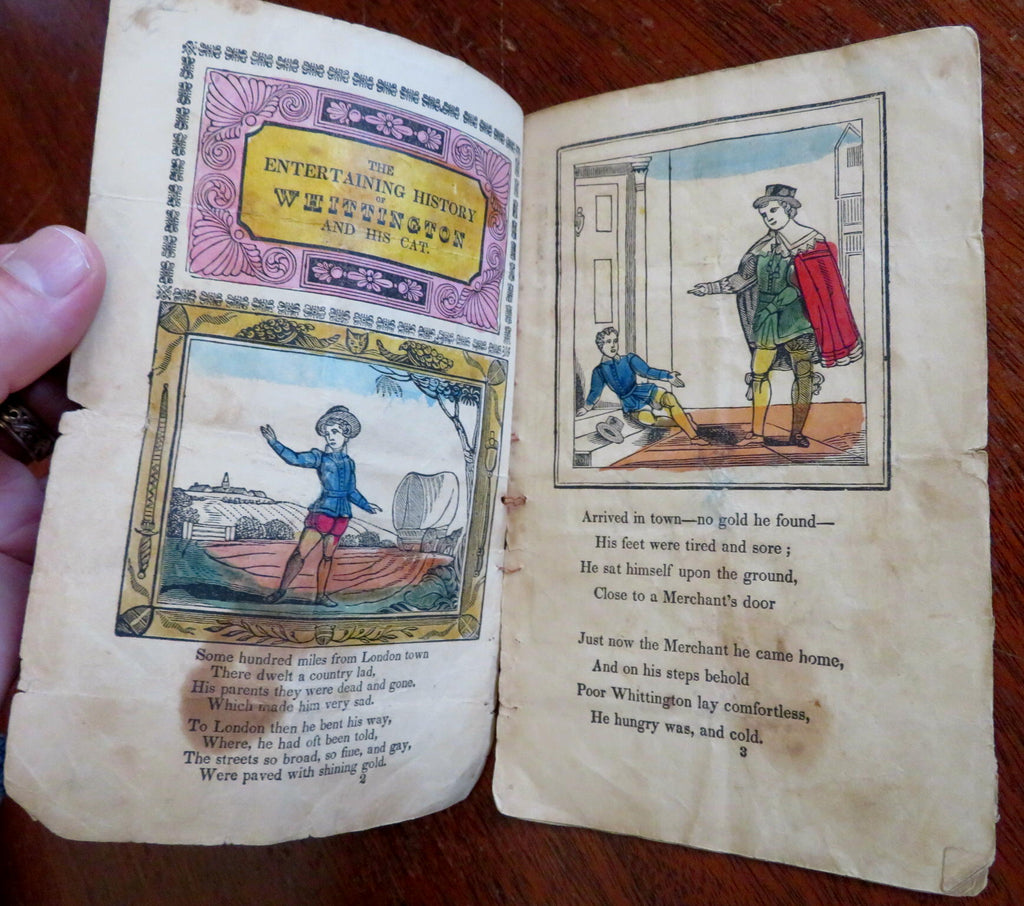 THE
ENTERTAINING HISTORY
OF
WHITTINGTON
AND HIS CAT.
Some hundred miles from London town
There dwelt a country lad,
His parents they were dead and gone.
Which made him very sad.
To London then he bent his way,
Where, he had oft been told,
The streets so broad, so fine, and gay,
Were paved with shining gold.
2
Arrived in town—no gold he found—
His feet were tired and sore ;
He sat himself upon the ground,
Close to a Merchant's door
Just now the Merchant he came home,
And on his steps behold
Poor Whittington lay comfortless,
He hungry was, and cold.
3